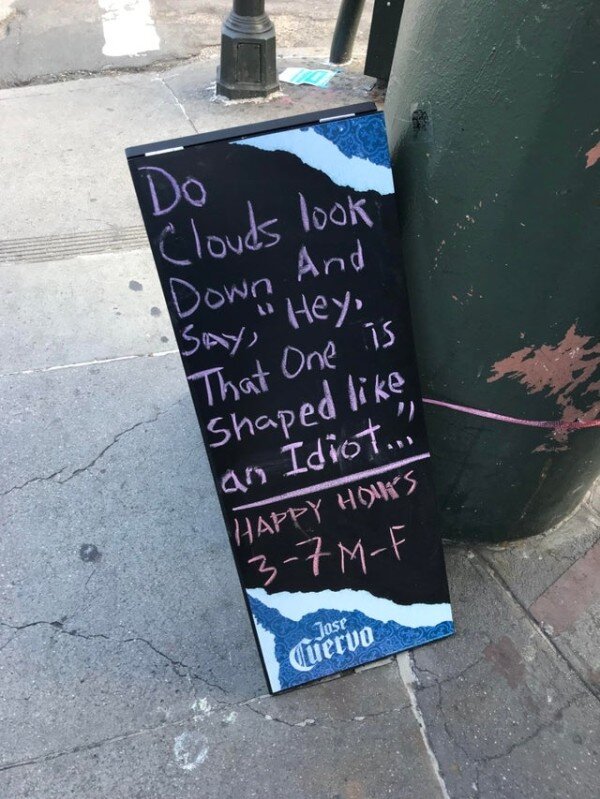 Do
Clouds look
Down And
SAY, "Hey,
That One is
Shaped like
an Idiot..."
HAPPY HOURS
3-7 M-F
Jose
Cuervo